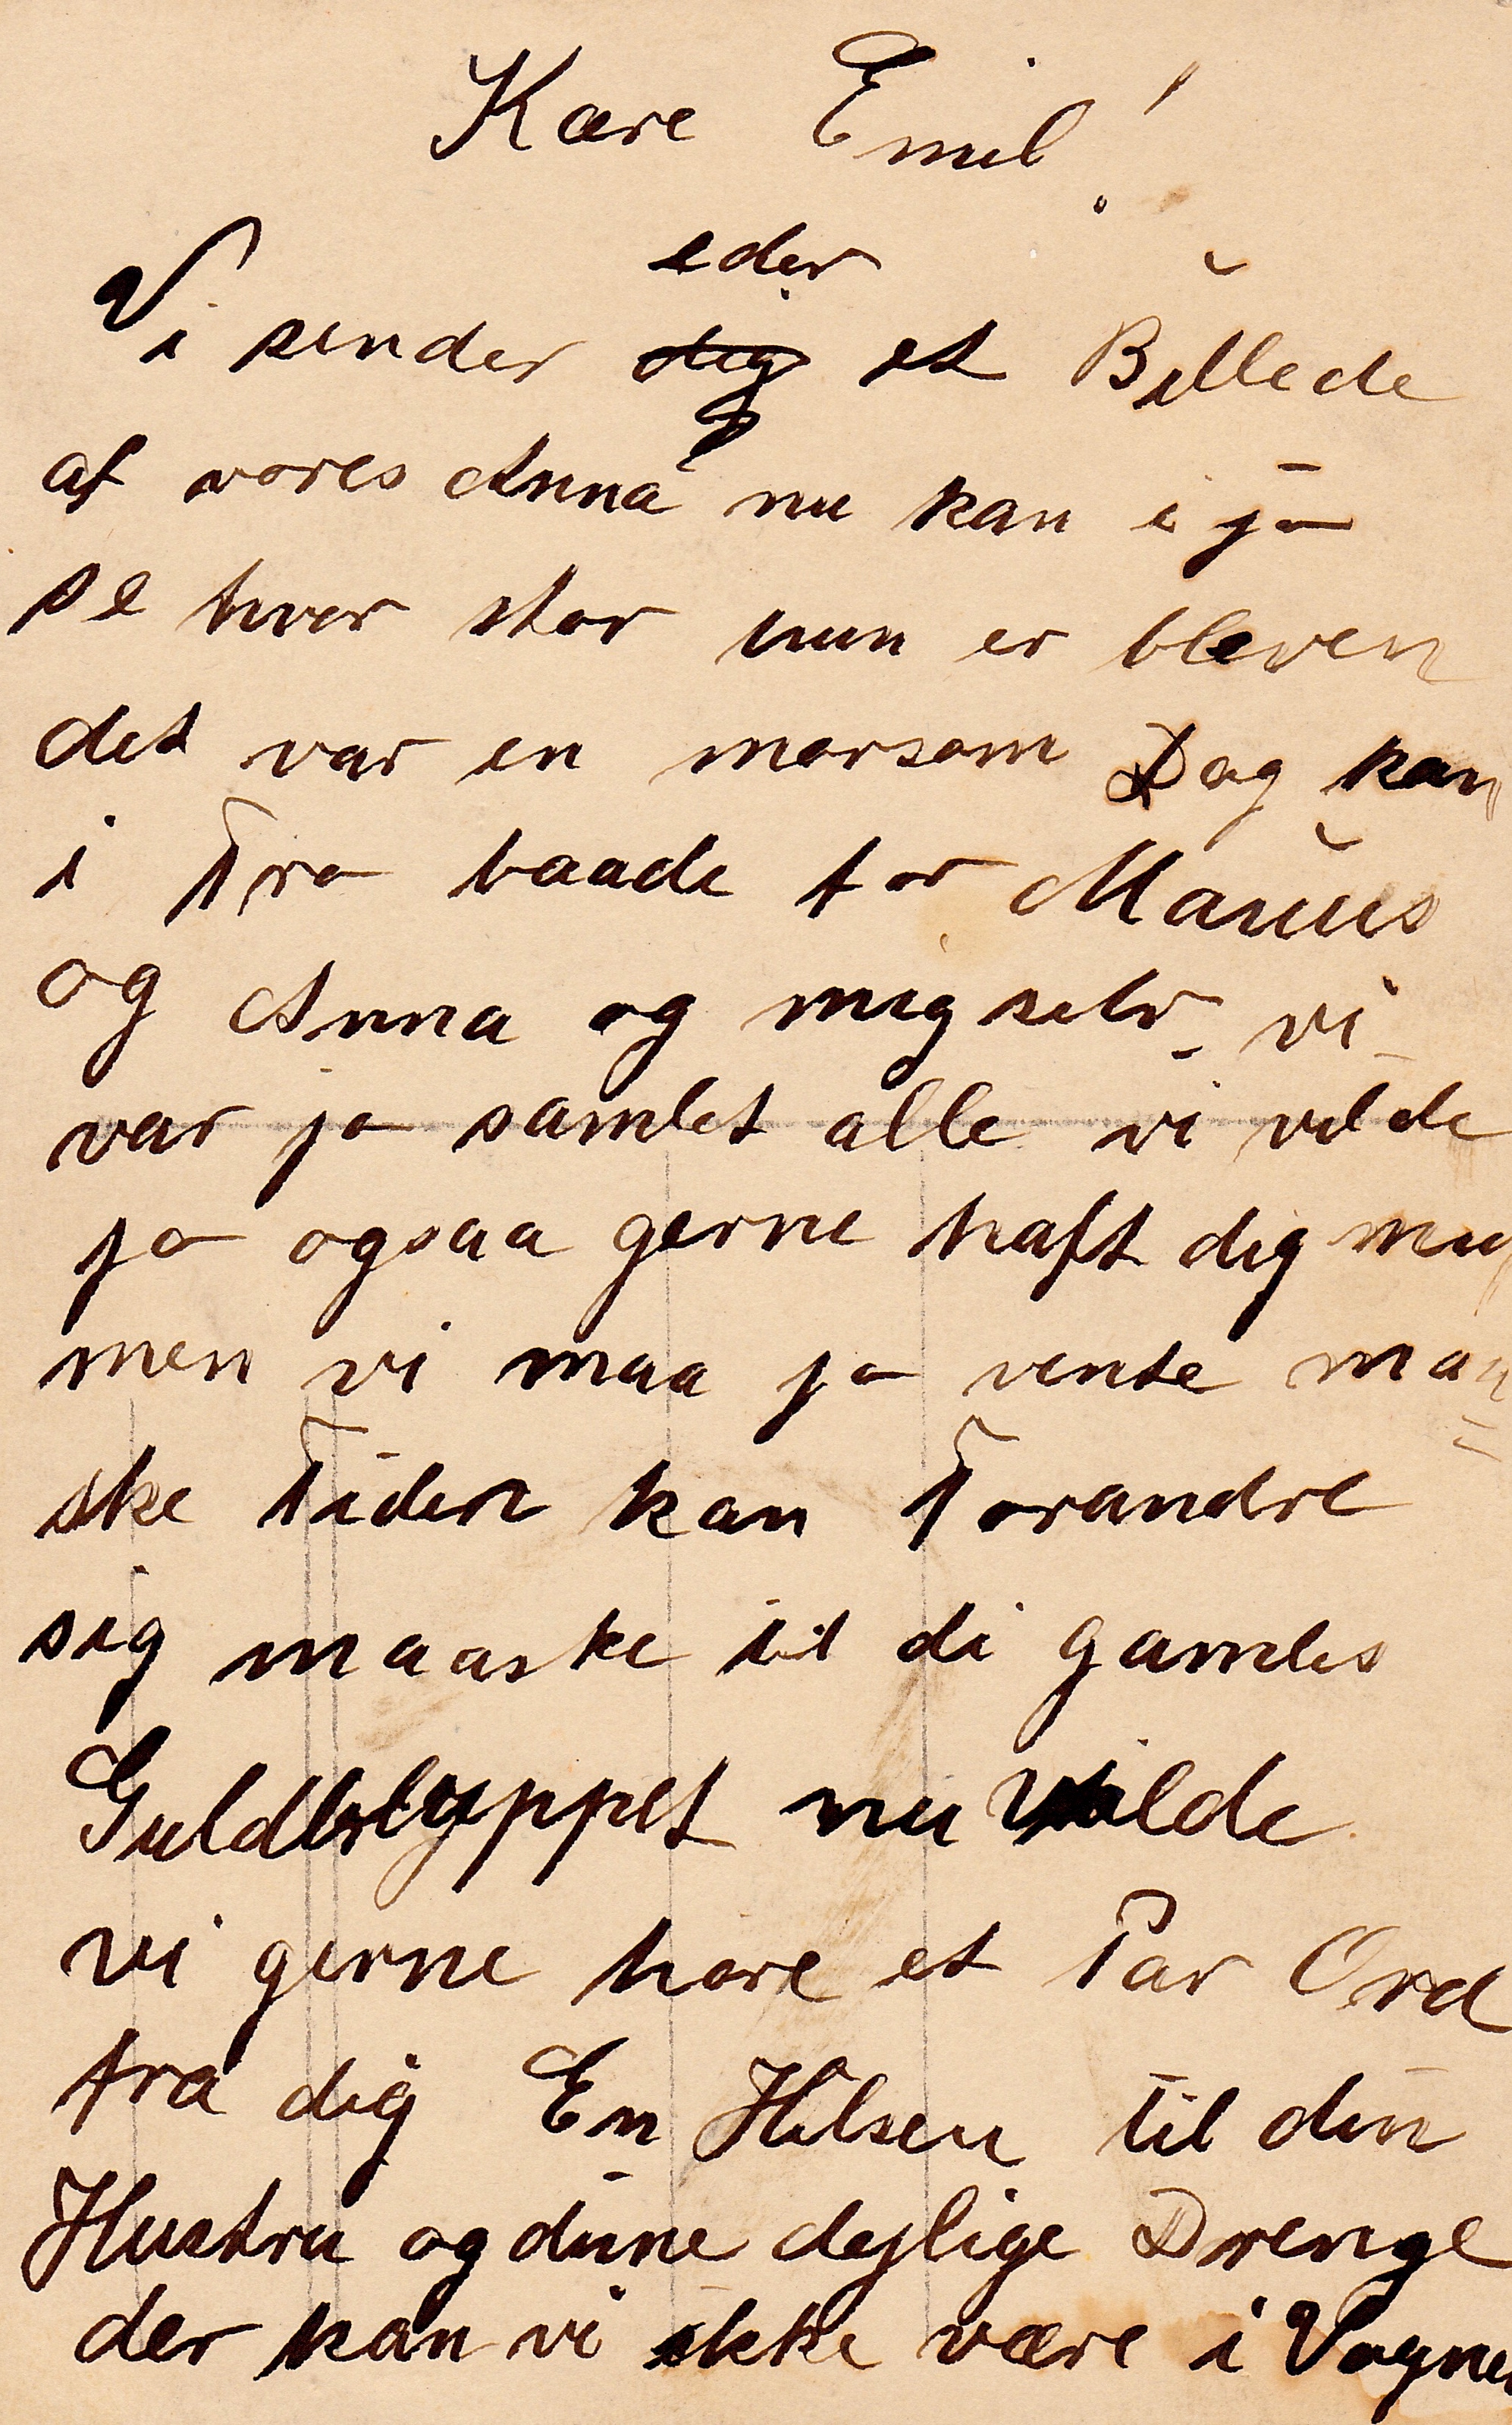 Kære Emil!
eder
Vi sender dig et Billede
af vores Anna nu kan i ja
se hvor stor hun er bleven
det var en morsom Dag kan
i Tro baade for Marius
og Anna og mig selv vi
var jo samlet alle vi vilde
jo ogsaa gerne haft dig mej
men vi maa jo vente maa=
ske Tiden kan Forandre
sig maaske til di gamles
Guldbryppet nu Vilde
vi gerne höre et Par Ord
fra dig En Hilsen til din
Hustru og dine dejlige Drenge
der kan vi ikke være i Vognen